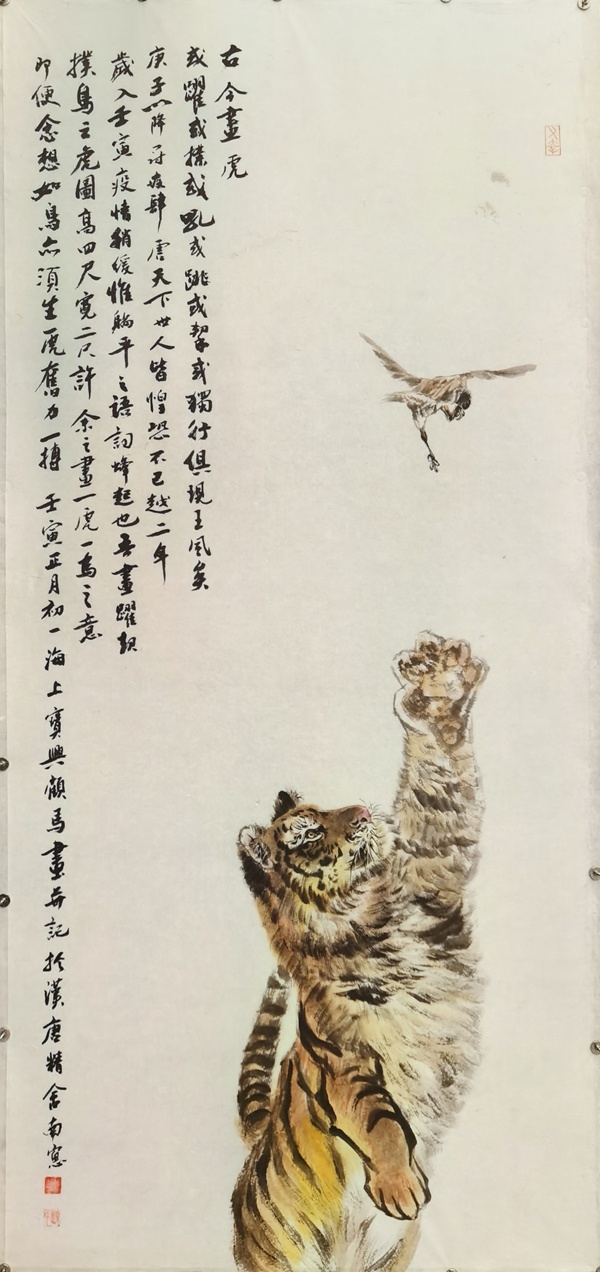 古今畫虎
或躍或撲或吼或跳或挈或獨行俱現王風矣
庚子以降冠疫肆虐天下世人皆惶恐不已越二年
歲入壬寅疫情稍緩惟躺平之語詞蜂起也吾畫躍起
撲鳥之虎圖高四尺寬二尺許余之畫一虎一鳥之意
即便念想如鳥亦須生虎奮力一搏 壬寅正月初一海上寶興顧馬畫并記於漢唐精舍南窓